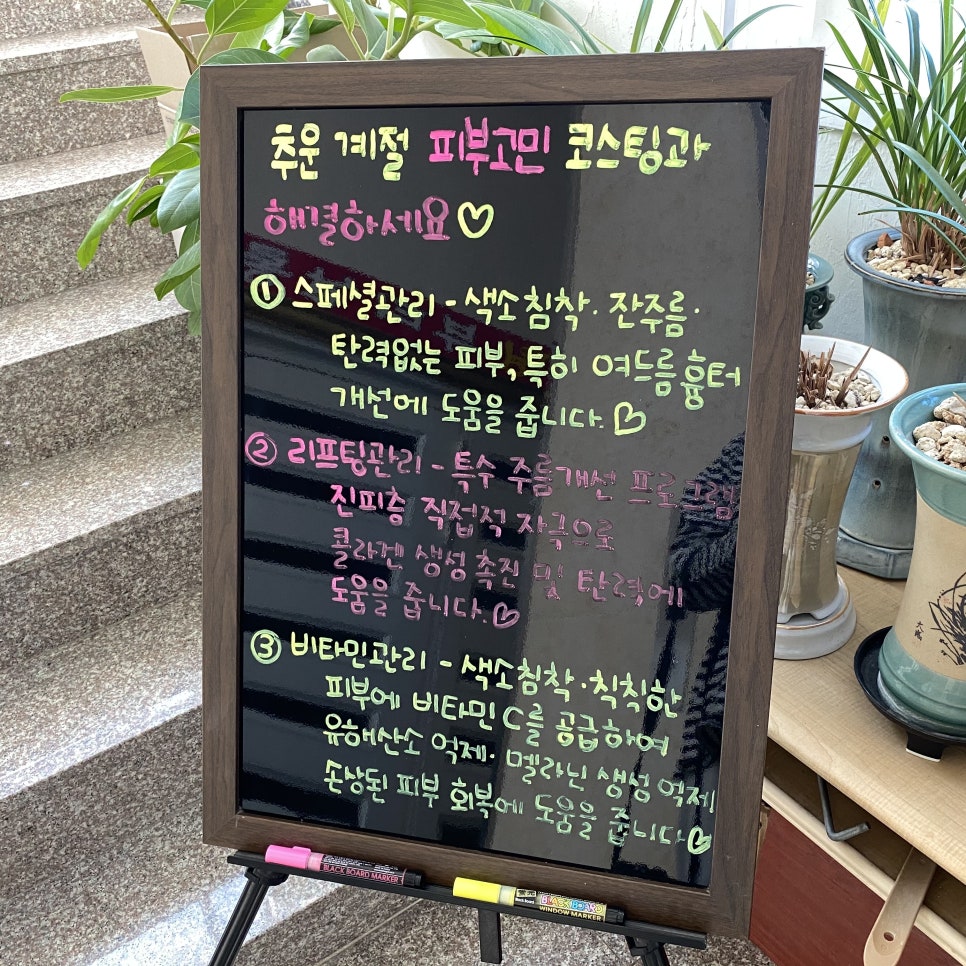 추운 계절 피부고민 코스팅과
해결하세요♡
① 스페셜관리 - 색소침착·잔주름·
탄력없는 피부, 특히 여드름흉터
개선에 도움을 줍니다.♡
② 리프팅관리 - 특수 주름개선 프로그램
진피층 직접적 자극으로
콜라겐 생성촉진 및 탄력에
도움을 줍니다.♡
③ 비타민관리 - 색소침착·칙칙한
피부에 비타민 C를 공급하여
유해산소 억제·멜라닌 생성 억제
손상된 피부 회복에 도움을 줍니다♡
BLACK BOARD MARKER
BLACK BOARD
WINDOW MARKER